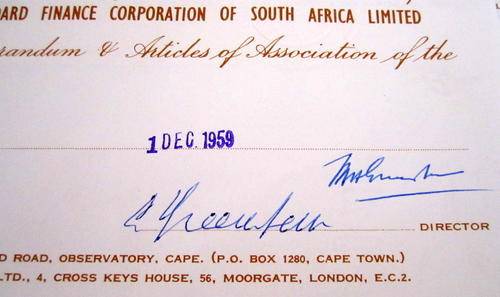 ARD FINANCE CORPORATION OF SOUTH AFRICA LIMITED
randum & Articles of Association of the
1 DEC. 1959
DIRECTOR
D ROAD, OBSERVATORY, CAPE. (P.O. BOX 1280, CAPE TOWN.)
LTD., 4, CROSS KEYS HOUSE, 56, MOORGATE, LONDON, E.C.2.